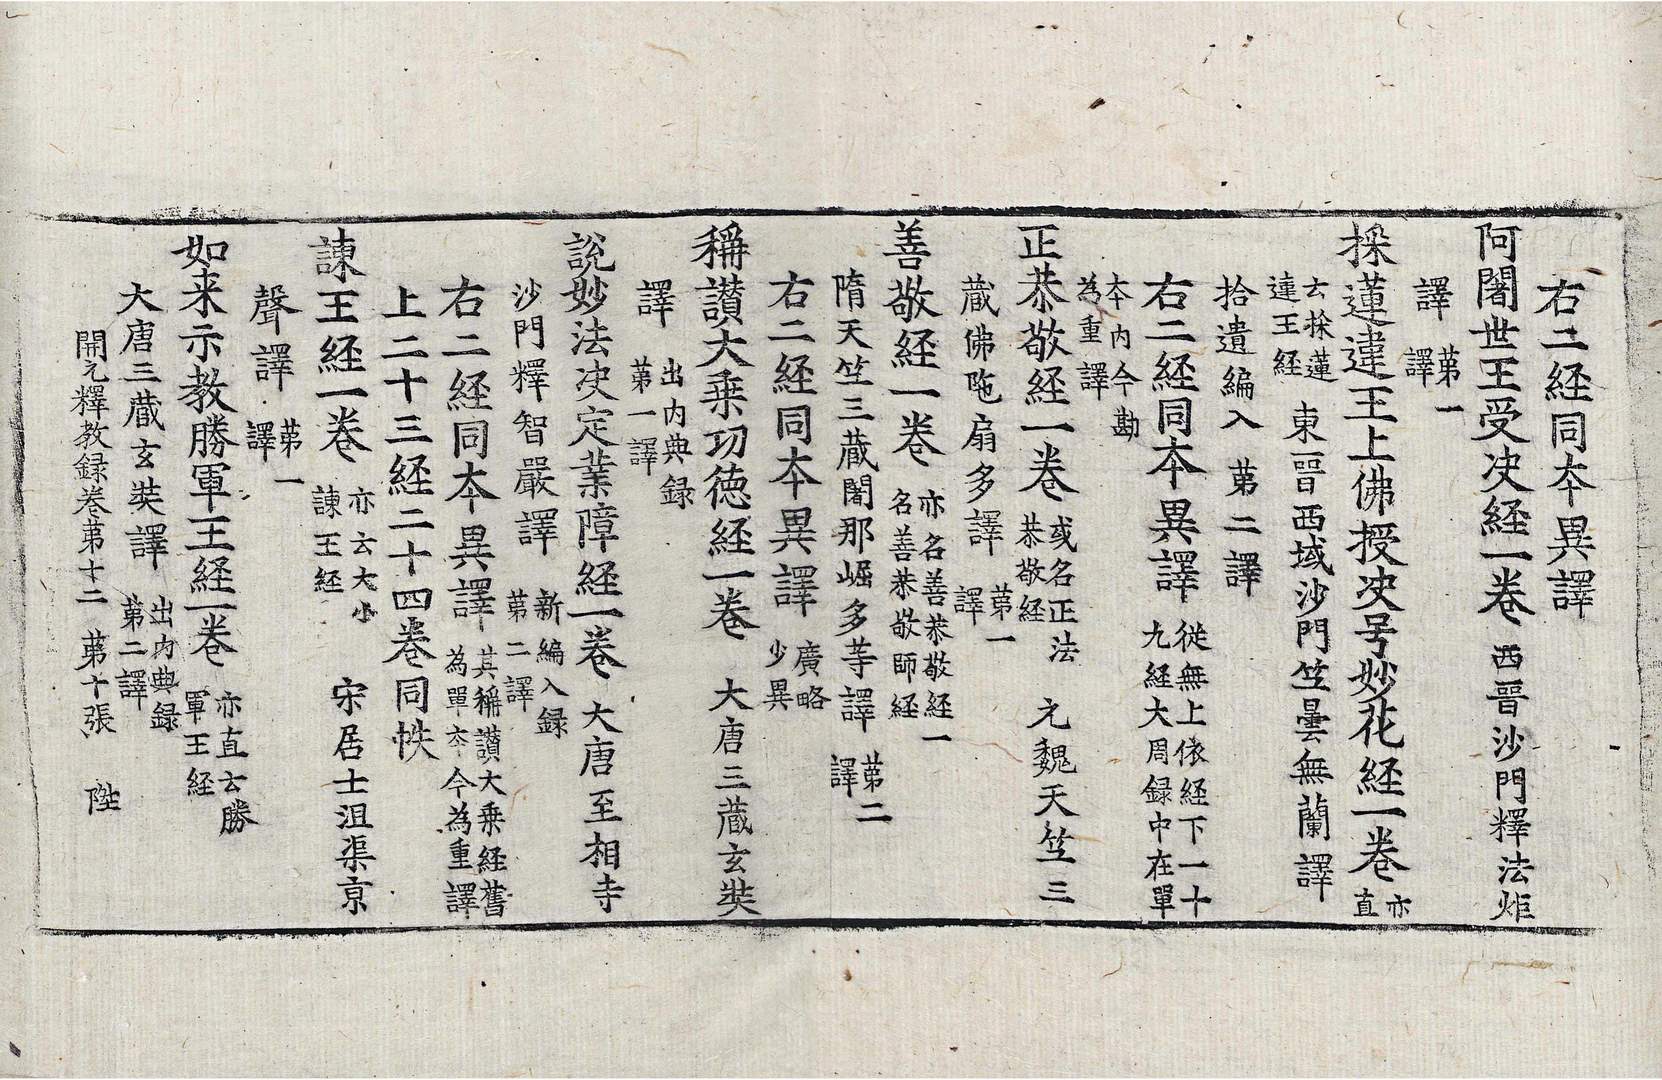 右三経同夲異譯
阿闍世王受决経一卷 西晉沙門釋法炬
譯 苐一譯
採蓮違王上佛授决号妙花経一卷 亦直
云採蓮違王経 東晉西域沙門竺曇無蘭譯
拾遺編入 苐二譯
右二経同夲異譯 從無上依経下一十九経大周録中在單
夲内今勘為重譯
正恭敬経一卷 或名正法恭敬経 元魏天竺三
蔵佛陁扇多譯 苐一譯
善敬経一卷 亦名善恭敬経一名善恭敬師経
隋天竺三蔵闍那崛多等譯 苐二譯
右二経同夲異譯 廣略少異
稱讃大乗功徳経一卷 大唐三蔵玄奘
譯 出内典録苐一譯
說妙法决定業障経一卷 大唐至相寺
沙門釋智嚴譯 新編入録苐二譯
右二経同夲異譯 其稱讃大乗経舊為單夲今為重譯
上二十三経二十四卷同帙
諫王経一卷 亦云大小諫王経 宋居士沮渠京
聲譯 苐一譯
如来示教勝軍王経一卷 亦直云勝軍王経
大唐三蔵玄奘譯 出内典録苐二譯
開元釋教録卷苐十二 苐十張 陛